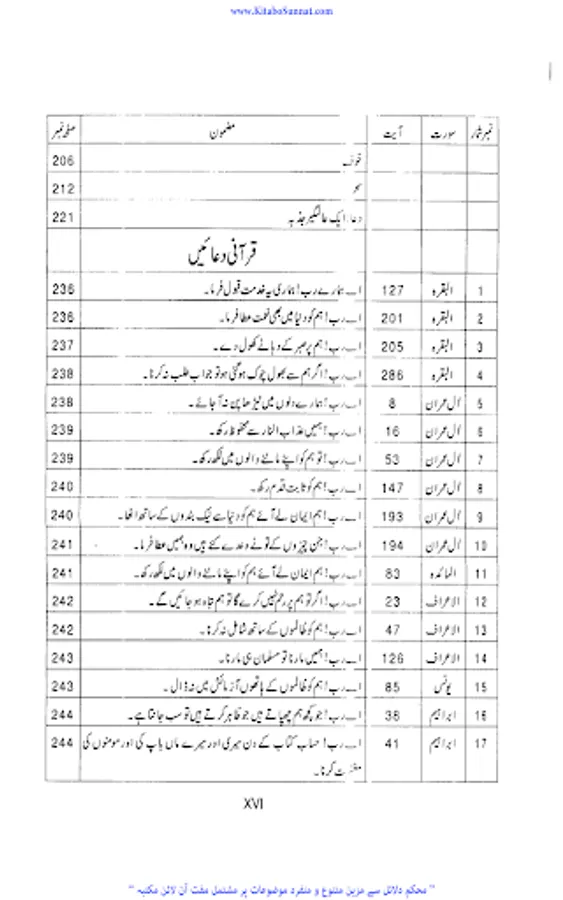 www.KitaboSunnat.com
نمبر شمار سورت آیت مضمون صفحہ نمبر
خوف 206
سحر 212
دعا: ایک عالمگیر جذبہ 221
قرآنی دعائیں
1 البقرہ 127 اے ہمارے رب! ہماری یہ خدمت قبول فرما۔ 236
2 البقرہ 201 اے رب! ہم کو دنیا میں بھی نعمت عطا فرما۔ 236
3 البقرہ 205 اے رب! ہم پر صبر کے دہانے کھول دے۔ 237
4 البقرہ 286 اے رب! اگر ہم سے بھول چوک ہو گئی ہو تو جواب طلب نہ کرنا۔ 238
5 آل عمران 8 اے رب! ہمارے دلوں میں ٹیڑھا پن نہ آ جائے۔ 238
6 آل عمران 16 اے رب! ہمیں عذاب النار سے محفوظ رکھ۔ 239
7 آل عمران 53 اے رب! تو ہم کو اپنے ماننے والوں میں لکھ رکھ۔ 239
8 آل عمران 147 اے رب! ہم کو ثابت قدم رکھ۔ 240
9 آل عمران 193 اے رب! ہم ایمان لے آئے ہم کو دنیا سے نیک بندوں کے ساتھ اٹھا۔ 240
10 آل عمران 194 اے رب! جن چیزوں کے تو نے وعدے کئے ہیں وہ ہمیں عطا فرما۔ 241
11 المائدہ 83 اے رب! ہم ایمان لے آئے ہم کو اپنے ماننے والوں میں لکھ رکھ۔ 241
12 الاعراف 23 اے رب! اگر تو ہم پر رحم نہیں کرے گا تو ہم تباہ ہو جائیں گے۔ 242
13 الاعراف 47 اے رب! ہم کو ظالموں کے ساتھ شامل نہ کرنا۔ 242
14 الاعراف 126 اے رب! ہمیں مارنا تو مسلمان ہی مارنا۔ 243
15 یونس 85 اے رب! ہم کو ظالموں کے ہاتھوں آزمائش میں نہ ڈال۔ 243
16 ابراہیم 38 اے رب! جو کچھ ہم چھپاتے ہیں جو ظاہر کرتے ہیں تو سب جانتا ہے۔ 244
17 ابراہیم 41 اے رب! حساب کتاب کے دن میری اور میرے ماں باپ کی اور مومنوں کی 244
مغفرت کرنا۔
XVI
" محکم دلائل سے مزین متنوع و منفرد موضوعات پر مشتمل مفت آن لائن مکتبہ "